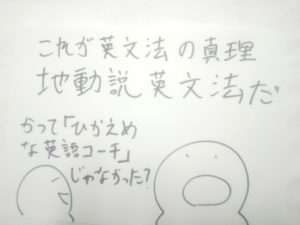 これが英文法の真理
地動説英文法だ
かって「ひかえめ
な英語コーチ」
じゃなかった?